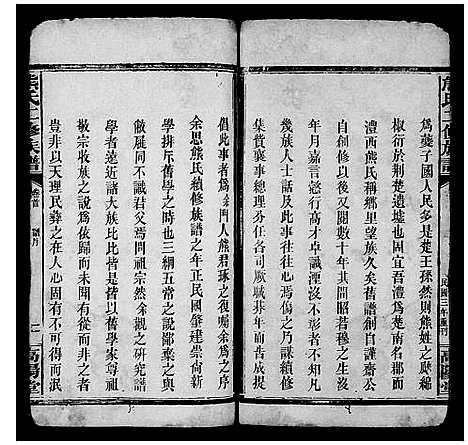 熊氏 修族譜
民國三年重刊
高陽堂
為蘷子國人民多是楚王孫然則熊姓之縣綿
椒衍於荆楚遺墟也固宜吾澧為楚南名郡而
澧西熊氏稱鄉里望族久矣舊譜創自謹齋公
自創修以後又閱數十年其間昭若穆之生歿
年月嘉言懿行高才卓識湮沒不彰者不知凡
幾族人士話及此事往往心焉傷之乃謀續修
集貲襄事得
倡此事者為余門人熊君琢之復囑余為之序
余思熊氏續修族譜之年正民國肇建崇尚新
學排斥舊學之時也三綱五常之說鄙棄之與
敝屣同不識君父焉問祖宗然余觀之研究譜
學者遠近諸大族比比皆是皆以舊學家尊祖
敬宗收族之說為依歸而未聞有從而非之者
豈非以天理民彝之在人心固有不可得而泯
熊氏 修族譜
卷首
高陽堂